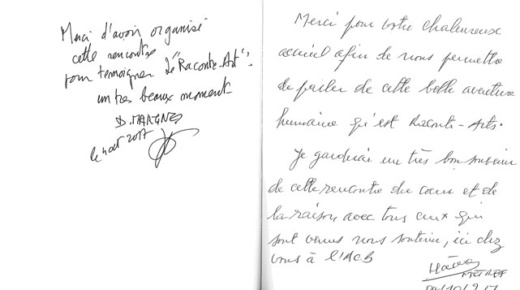 Merci d'avoir organisé
cette rencontre
pour temoigner "Raconte-Art".
un tres beaux moment
2017
Merci pour votre chaleureux
accueil afin de nous permettre
de parler de cette belle aventure
humaine qu'est Raconte-Arts.
Je garderai un très bon souvenir
de cette rencontre du cœur et de
la raison avec tous ceux qui
sont venus nous soutenir, ici chez
vous à l'ACB